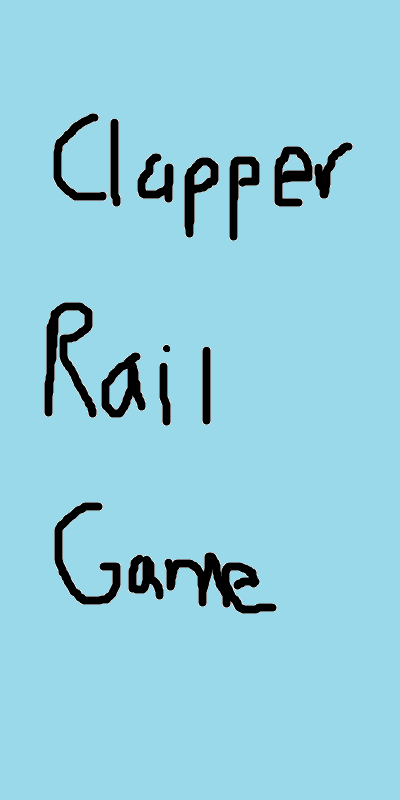 Clapper
Rail
Game